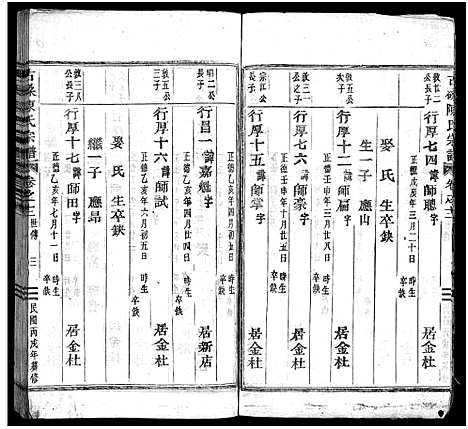 古磉陳氏宗譜 卷之十三
敦廿二公長子
行厚七四 諱師聰 字
正德戊寅年三月二十日 時生 卒缺
居金杜
娶 氏 生卒缺
生一子 應山
敦五公次子
行厚十二 諱師扁 字
正德壬申年三月廿八 時生 卒缺
居金杜
敦三一公之子 宗江公
行厚十五 諱師掌
正德壬申年四月廿四 時生 卒缺
居金杜
明二公長子
行昌一 諱嘉魁 字
正德乙亥年四月廿四日 時生 卒缺
居新店
敦五公三子
行厚十六 諱師試
正德乙亥年六月初五日 時生 卒缺
居金杜
娶 氏 生卒缺
繼一子 應昂
敦三八公長子
行厚十七 諱師田 字
正德乙亥年七月十一日 時生 卒缺
居金杜
陳氏宗譜 卷之十三 世傳 三
民國丙戌年纂修